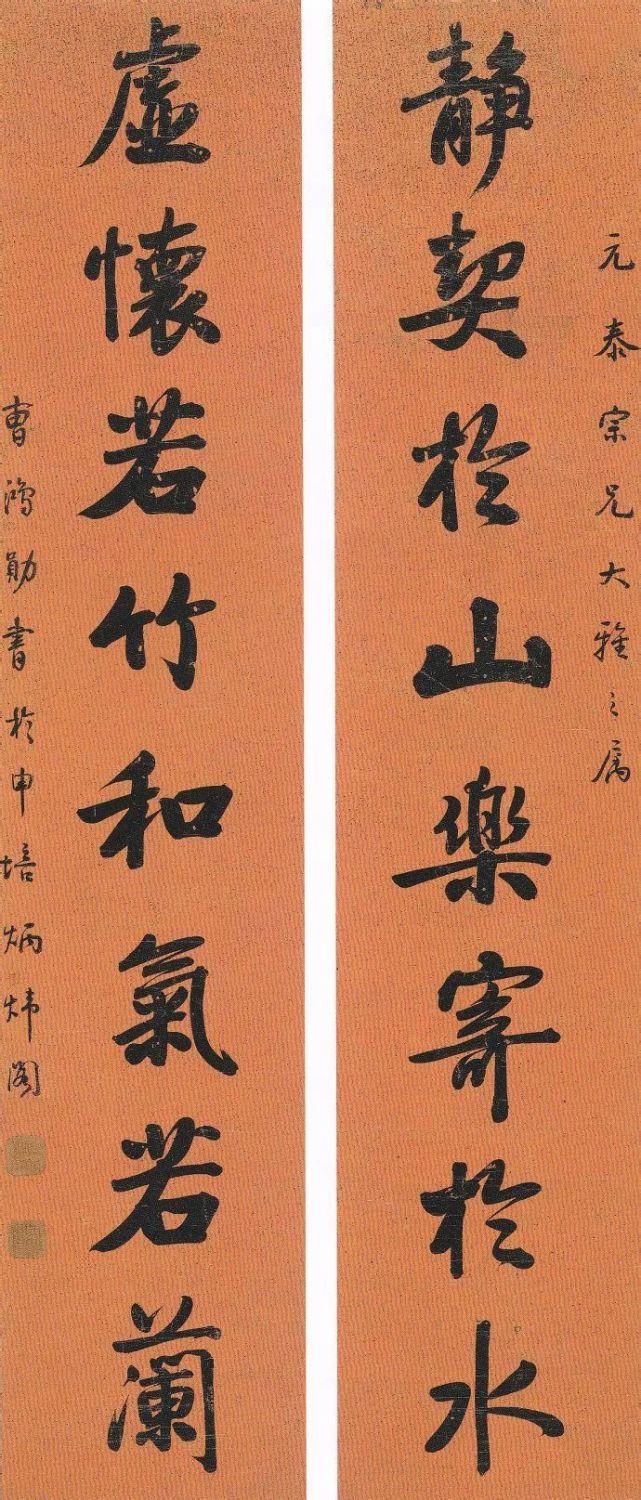 元泰宗兄大雅之属
靜契於山樂寄於水
虛懷若竹和氣若蘭
曹鴻勛書於申培炳煒閣